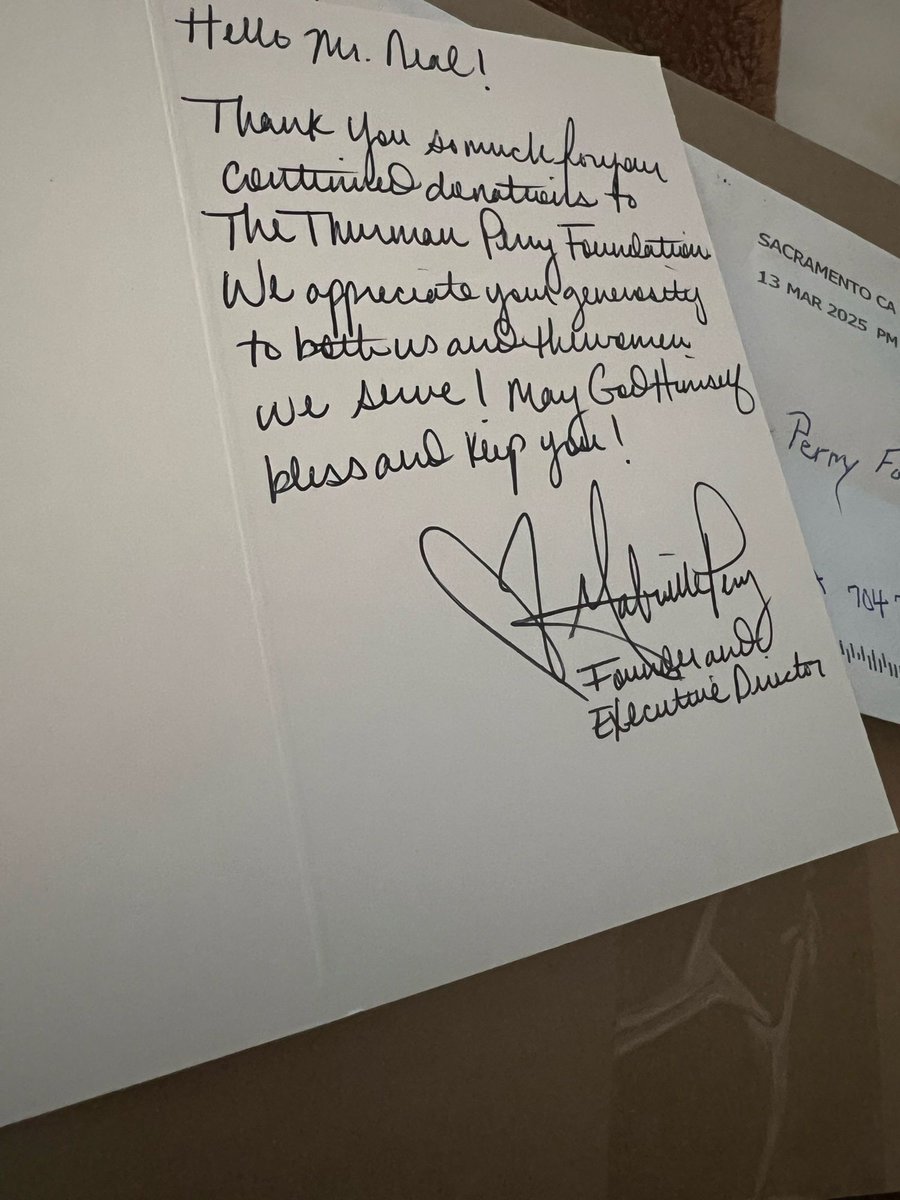 Hello Mr. Neal!
Thank you so much for your
continued donations to
The Thurman Perry Foundation
We appreciate your generosity
to both us and the women
we serve! May God Himself
bless and keep you!
Gabrielle Perry
Founder and
Executive Director
SACRAMENTO CA
13 MAR 2025 PM
Perry Fo
704